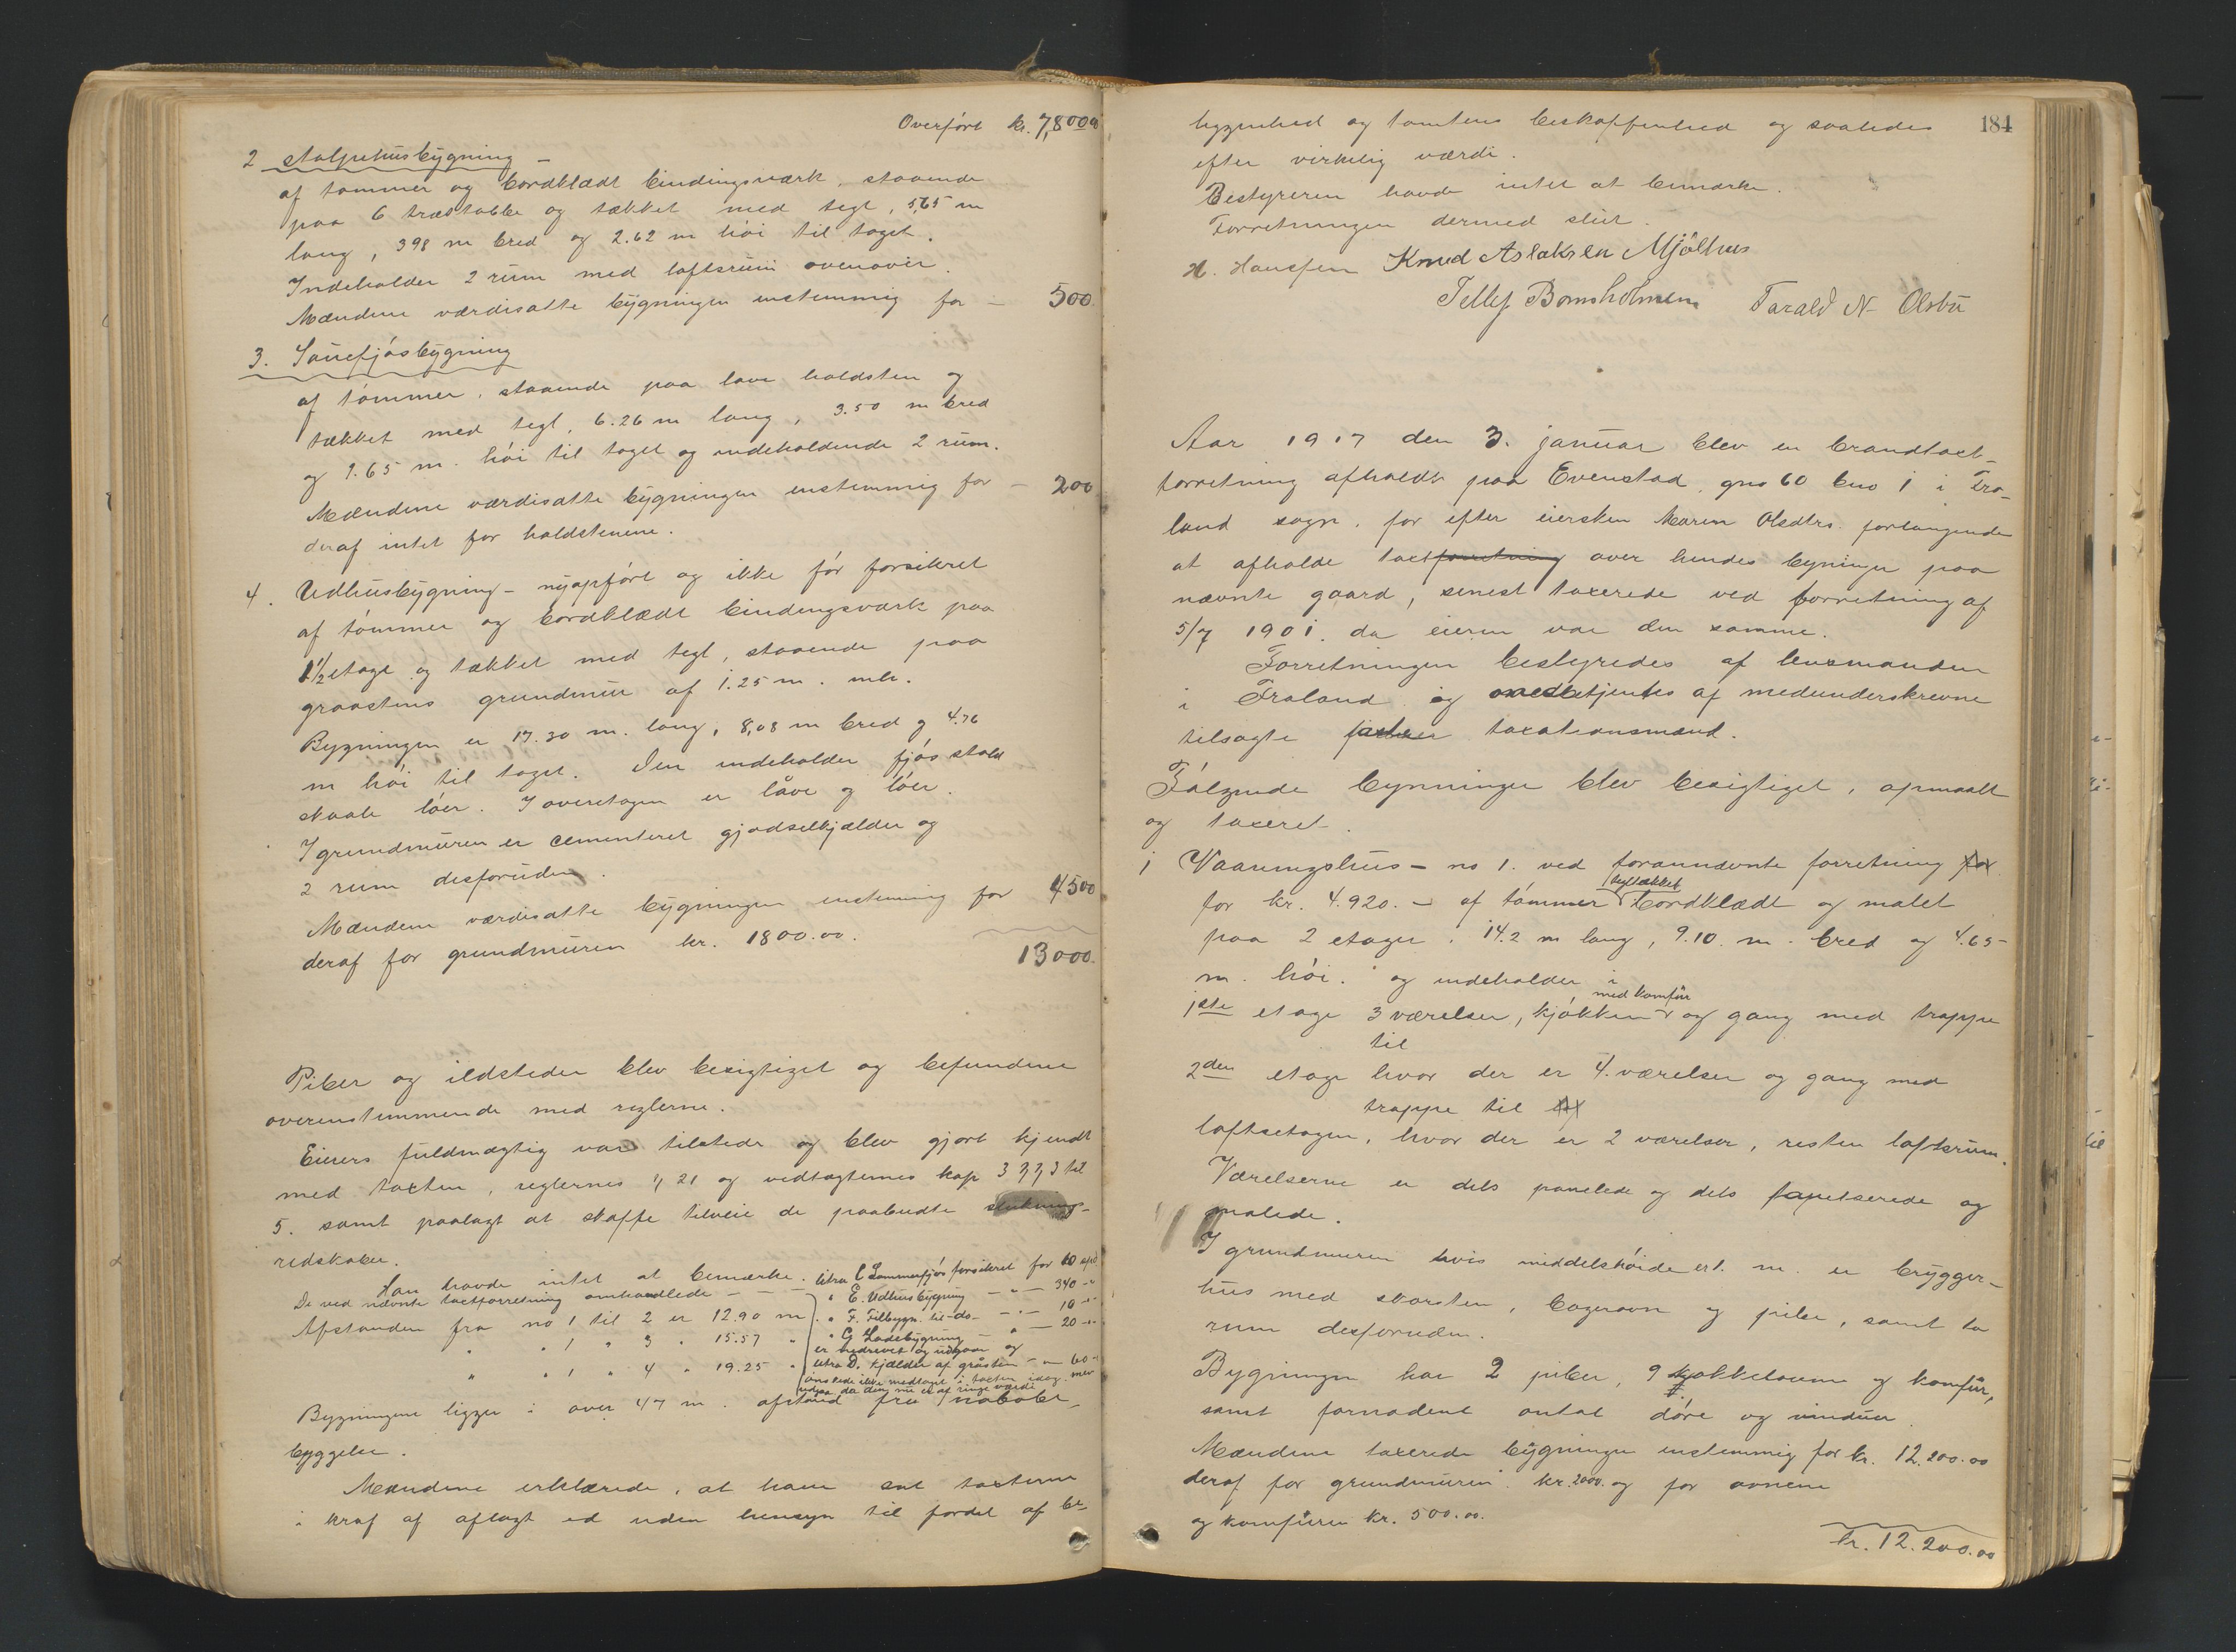 Overført kr. 7,800.00
2 Stolpehusbygning -
af tømmer og bordklædt bindingsværk, staaende
paa 6 træstabbe og tækket med tegl, 5,65 m
lang, 398 m bred og 2.62 m høi til taget.
Indeholder 2 rum med loftsrum ovenover.
Mændene værdisatte bygningen enstemmig for - 500.
3. Sauefjøsbygning
af tømmer, staaende paa lave holdsten og
tækket med tegl, 6.26 m lang, 3.50 m bred
og 1.65 m. høi til taget og indeholdende 2 rum.
Mændene værdisatte bygningen enstemmig for - 200
deraf intet for holdstenene.
4. Udhusbygning - nyopført og ikke før forsikret
af tømmer og bordklædt bindingsværk paa
1 1/2 etage og tækket med tegl, staaende paa
graastens grundmur af 1.25 m. mh.
Bygningen er 17.30 m. lang, 8,08 m bred og 4.76
m høi til taget. Den indeholder fjøs stald
skaale løer. I overetagen er låve og løer.
I grundmuren er cementeret gjødselkjælder og
2 rum desforuden.
Mændene værdisatte bygningen enstemmig for 4500
deraf for grundmuren kr. 1800.00.
13000.
Piber og ildsteder blev besigtiget og befundene
overenstemmende med reglerne.
Eierens fuldmægtig var tilstede og blev gjort kjendt
med taxten, reglernes § 21 og vedtægternes kap 3 §§ 3 til
5. samt paalagt at skaffe tilveie de paabudte sluknings-
redskaber.
Han havde intet at bemærke. litra C Sommerfjøs forsikret for 10
De ved nævnte taxtforretning omhandlede - - - " E. Udhusbygning - " - 340 -"
Afstanden fra no 1 til 2 er 12.90 m. " F. Tilbygn. til -do- - " - 10 -"
" " 1 " 3 " 15.57 " " G Ladebygning - " - 20 -"
er nedrevet og udgaar og
" " 1 " 4 " 19.25 " litra D. kjælder af gråsten - " 60 -"
ønskede ikke medtaget i taxten idag men
udgaa da den nu er af ringe værdi
Bygningene ligger i over 47 m. afstand fra nabobe-
byggelse.
Mændene erklærede, at have sat taxterne
i kraf af aflagt ed uden hensyn til fordel af be-
184
liggenhed og tomtens beskaffenhed og saaledes
efter virkelig værdi.
Bestyreren havde intet at bemærke.
Forretningen dermed slut.
H. Hansen Knud Aslaksen Mjølhus
Tellef Bomsholmen Tarald N. Olsbu
Aar 1917 den 3. januar blev en brandtaxt-
forretning afholdt paa Evenstad, gno 60 bno 1 i Fro-
land sogn, for efter eiersken Maren Olsdtrs. forlangende
at afholde taxtforretning over hendes bygninger paa
nævnte gaard, senest taxerede ved forretning af
5/7 1901. da eieren var den samme.
Forretningen bestyredes af lensmanden
i Froland og medbetjentes af medunderskrevne
tilsagte faste taxationsmænd.
Følgende bygninger blev besigtiget, opmaalt
og taxeret.
1 Vaaningshus - no 1. ved forannævnte forretning for
tegltækket
for kr. 4.920. - af tømmer bordklædt og malet
paa 2 etager. 14.2 m lang, 9.10 m. bred og 4.65
m. høi. og indeholder i
med komfur
1ste etage 3 værelser, kjøkken og gang med trappe
til
2den etage hvor der er 4. værelser og gang med
trappe til
loftsetagen, hvor der er 2 værelser, resten loftsrum.
Værelserne er dels panelede og dels tapetserede og
malede.
I grundmuren hvis middelshøide er 1. m. er brygger-
hus med skorsten, bagerovn og pibe, samt to
rum desforuden.
Bygningen har 2 piber, 9 kakkelovne og komfur,
samt fornødent antal døre og vinduer.
Mændene taxerede bygningen enstemmig for kr. 12.200.00
deraf for grundmuren kr. 2000. og for ovnene
og komfuren kr. 500.00.
kr. 12.200.00